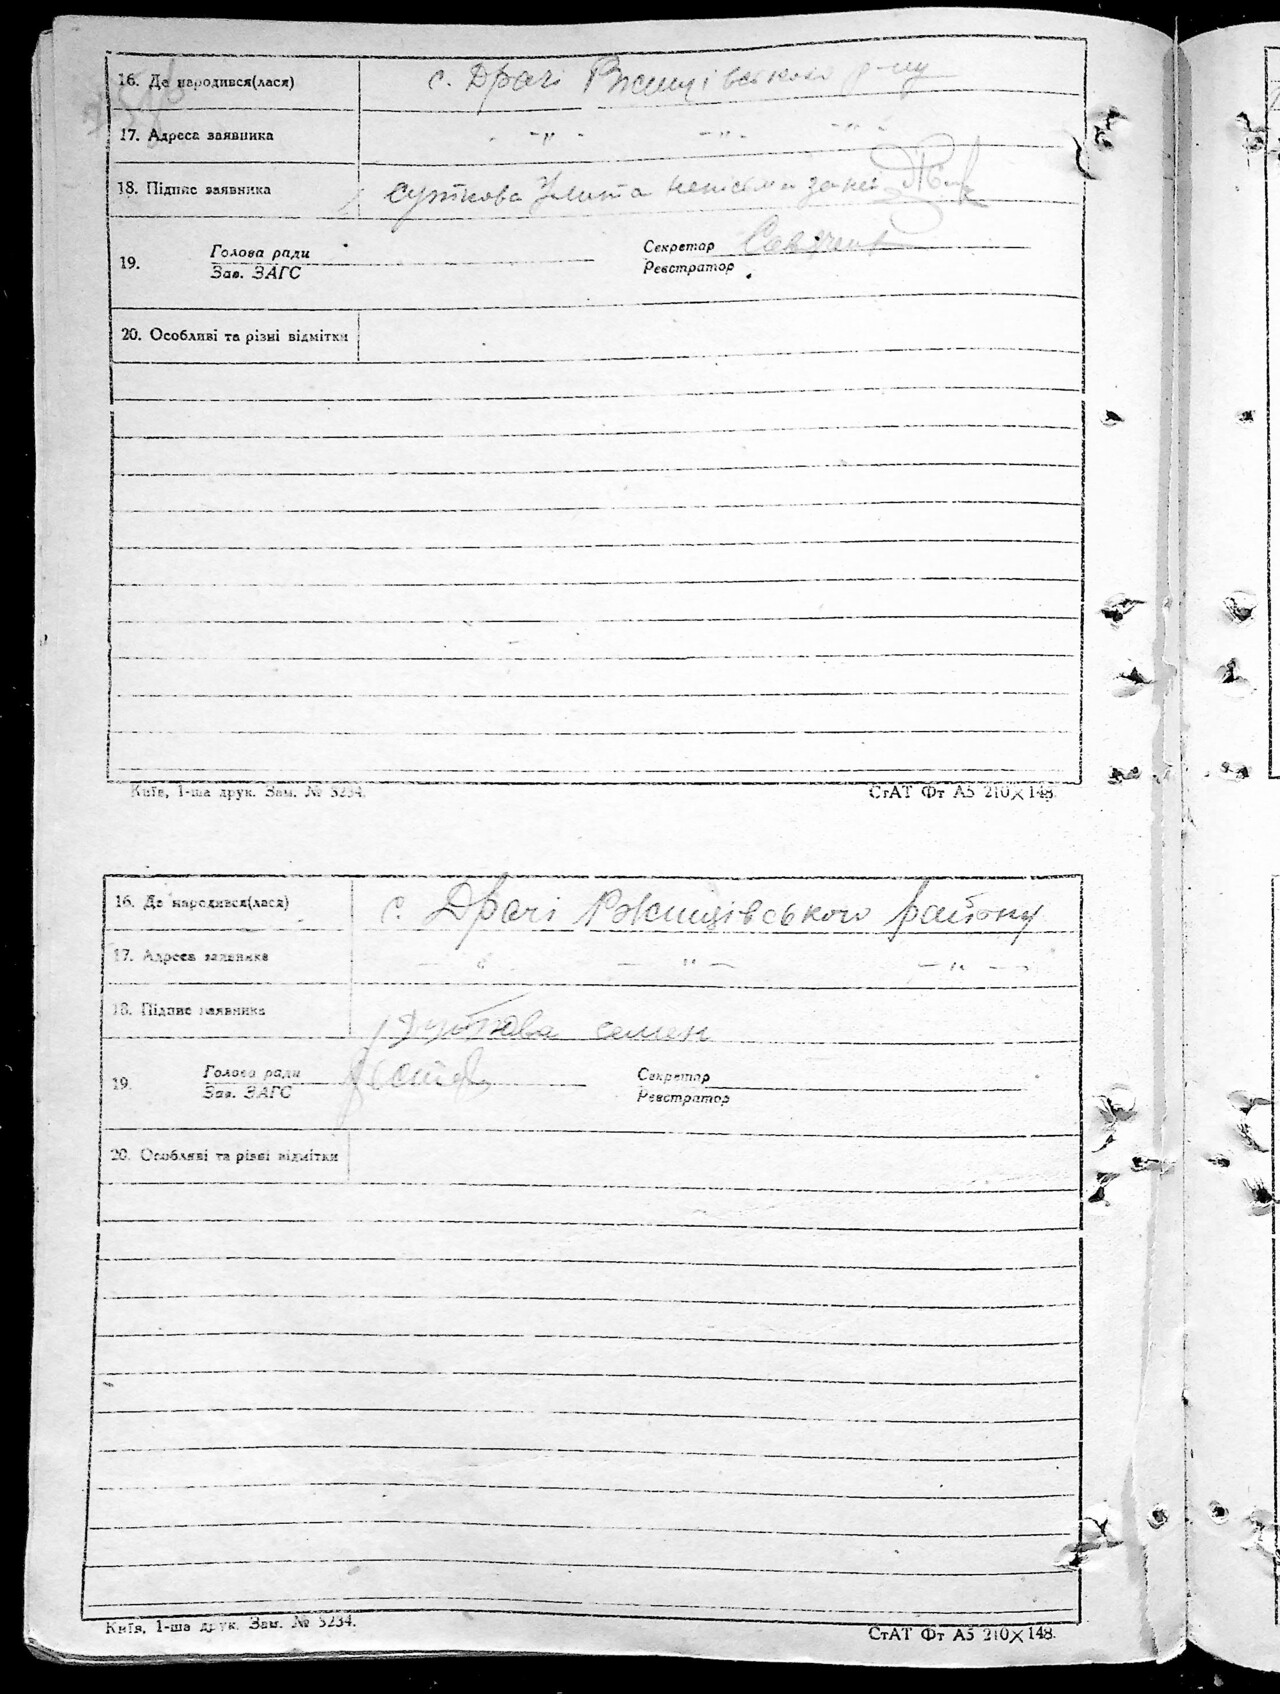 16. Де народився(лася) с. Драчі Ржищівського р-ну
17. Адреса заявника - " - - " - - " -
18. Підпис заявника Улита за неї
Голова ради Секретар
19.
Зав. ЗАГС Реєстратор
20. Особливі та різні відмітки
Київ, 1-ша друк. Зам. № 5234. СтАТ Фт А5 210×148.
16. Де народився(лася) с. Драчі Ржищівського району
17. Адреса заявника - " - - " - - " -
18. Підпис заявника семен
Голова ради Секретар
19.
Зав. ЗАГС Реєстратор
20. Особливі та різні відмітки
Київ, 1-ша друк. Зам. № 5234. СтАТ Фт А5 210×148.